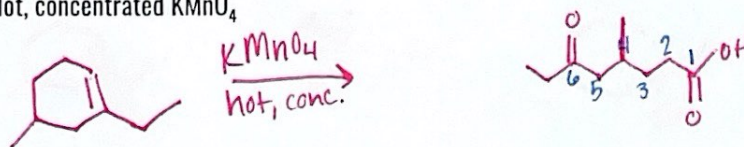 lot, concentrated KMnO4
KMnO4
hot, conc.
O
6
5
4
3
2
1
OH
O